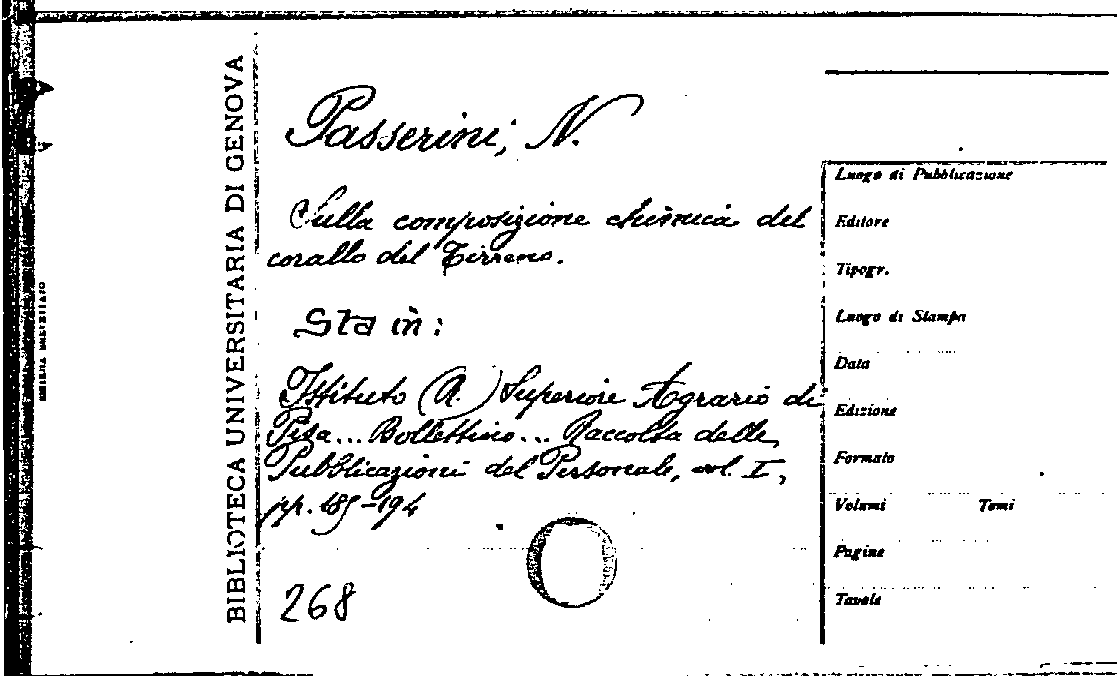 BIBLIOTECA UNIVERSITARIA DI GENOVA
Passerini, N.
Sulla composizione chimica del
corallo del Tirreno.
Sta in:
Istituto (R.) Superiore Agrario di
Pisa... Bollettino... Raccolta delle
Pubblicazioni del Personale, vol. I,
pp. 185-194
268
Luogo di Pubblicazione
Editore
Tipogr.
Luogo di Stampa
Data
Edizione
Formato
Volumi Tomi
Pagine
Tavole